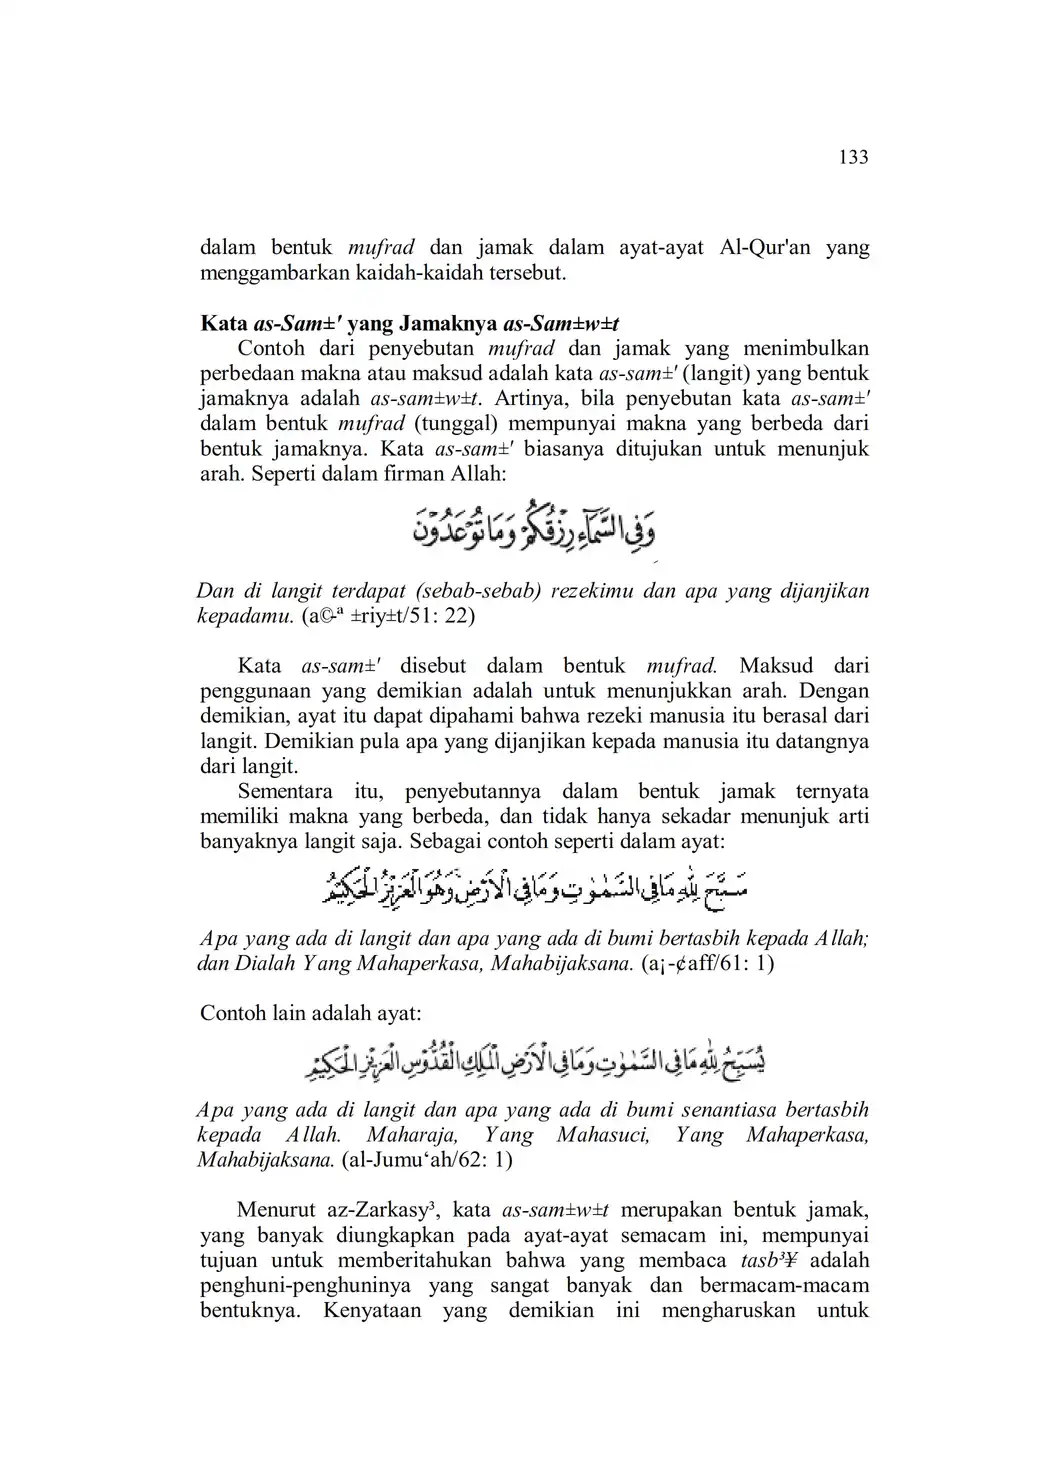 133
dalam bentuk mufrad dan jamak dalam ayat-ayat Al-Qur'an yang
menggambarkan kaidah-kaidah tersebut.
Kata as-Sam±' yang Jamaknya as-Sam±w±t
Contoh dari penyebutan mufrad dan jamak yang menimbulkan
perbedaan makna atau maksud adalah kata as-sam±' (langit) yang bentuk
jamaknya adalah as-sam±w±t. Artinya, bila penyebutan kata as-sam±'
dalam bentuk mufrad (tunggal) mempunyai makna yang berbeda dari
bentuk jamaknya. Kata as-sam±' biasanya ditujukan untuk menunjuk
arah. Seperti dalam firman Allah:
وَفِى السَّمَاۤءِ رِزْقُكُمْ وَمَا تُوْعَدُوْنَ
Dan di langit terdapat (sebab-sebab) rezekimu dan apa yang dijanjikan
kepadamu. (a©-ª ±riy±t/51: 22)
Kata as-sam±' disebut dalam bentuk mufrad. Maksud dari
penggunaan yang demikian adalah untuk menunjukkan arah. Dengan
demikian, ayat itu dapat dipahami bahwa rezeki manusia itu berasal dari
langit. Demikian pula apa yang dijanjikan kepada manusia itu datangnya
dari langit.
Sementara itu, penyebutannya dalam bentuk jamak ternyata
memiliki makna yang berbeda, dan tidak hanya sekadar menunjuk arti
banyaknya langit saja. Sebagai contoh seperti dalam ayat:
سَبَّحَ لِلّٰهِ مَا فِى السَّمٰوٰتِ وَمَا فِى الْاَرْضِۚ وَهُوَ الْعَزِيْزُ الْحَكِيْمُ
Apa yang ada di langit dan apa yang ada di bumi bertasbih kepada Allah;
dan Dialah Yang Mahaperkasa, Mahabijaksana. (a¡-¢aff/61: 1)
Contoh lain adalah ayat:
يُسَبِّحُ لِلّٰهِ مَا فِى السَّمٰوٰتِ وَمَا فِى الْاَرْضِ الْمَلِكِ الْقُدُّوْسِ الْعَزِيْزِ الْحَكِيْمِ
Apa yang ada di langit dan apa yang ada di bumi senantiasa bertasbih
kepada Allah. Maharaja, Yang Mahasuci, Yang Mahaperkasa,
Mahabijaksana. (al-Jumu‘ah/62: 1)
Menurut az-Zarkasy³, kata as-sam±w±t merupakan bentuk jamak,
yang banyak diungkapkan pada ayat-ayat semacam ini, mempunyai
tujuan untuk memberitahukan bahwa yang membaca tasb³¥ adalah
penghuni-penghuninya yang sangat banyak dan bermacam-macam
bentuknya. Kenyataan yang demikian ini mengharuskan untuk